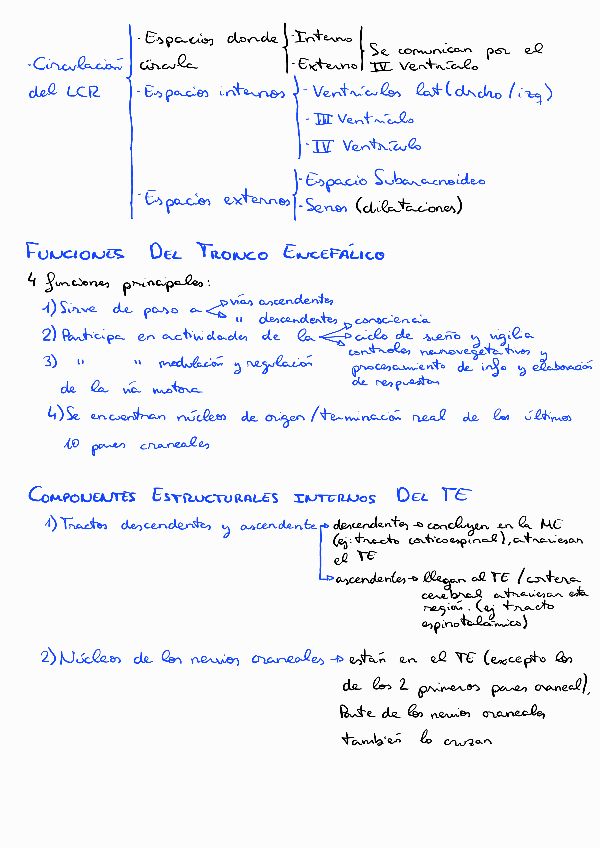 · Espacios donde circula
· Interno
· Externo
Se comunican por el IV Ventrículo
· Circulación del LCR
· Espacios internos
· Ventrículos lat (drcho / izq)
· III Ventrículo
· IV Ventrículo
· Espacios externos
· Espacio Subaracnoideo
· Senos (dilataciones)
FUNCIONES DEL TRONCO ENCEFÁLICO
4 funciones principales:
1) Sirve de paso a vías ascendentes
" descendentes
2) Participa en actividades de la consciencia
ciclo de sueño y vigilia
controles neurovegetativos y
procesamiento de info y elaboración
de respuestas
3) " " modulación y regulación
de la vía motora
4) Se encuentran núcleos de origen / terminación real de los últimos
10 pares craneales
COMPONENTES ESTRUCTURALES INTERNOS DEL TE
1) Tractos descendentes y ascendente → descendentes → concluyen en la ME
(ej: tracto corticoespinal), atraviesan
el TE
→ ascendentes → llegan al TE / corteza
cerebral atraviesan esta
región. (ej tracto
espinotalámico)
2) Núcleos de los nervios craneales → están en el TE (excepto los
de los 2 primeros pares craneal),
Parte de los nervios craneales
también lo cruzan